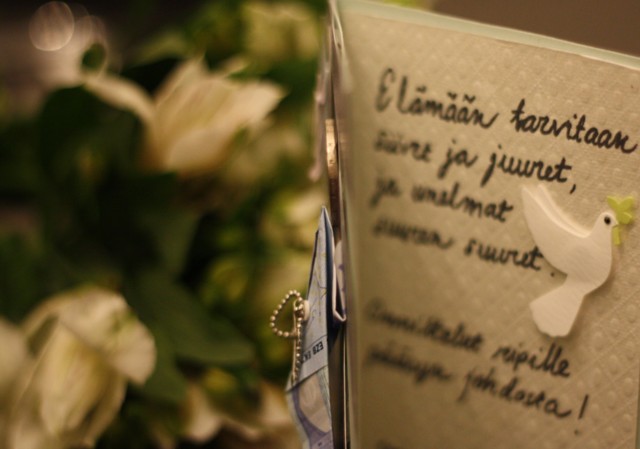 Elämään tarvitaan
siivet ja juuret,
ja unelmat
suuren suuret.
Onnittelut ripille
pääsyn johdosta!